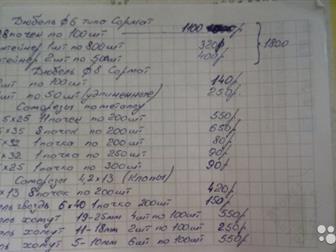 Дюбель ф6 типа Сормат
8 пачек по 100 шт 1100
1 шт по 300 шт 320р } 1800
2 шт по 50 шт 400р
Дюбель ф8 Сормат
по 100 шт 140р
шт по 50 шт (удлиненные) 250р
Саморезы по металлу
5х25 11 пачек по 200 шт 550р
5х35 8 пачек по 200 шт 650р
х32 1 пачка по 200 шт 80р
х32 1 пачка по 250 шт 90р
х25 1 пачка по 300 шт 90р
Саморезы 4,2х13 (Клопы)
х13 8 пачек по 200 шт 420р
гвоздь 6х40 1 пачка 200 шт 150р
хомут 19-25мм 4 шт по 100 шт 550р
хомут 11-18мм 2 шт по 100 шт 250р
хомут 5-10мм 6 шт по 100 шт 550р